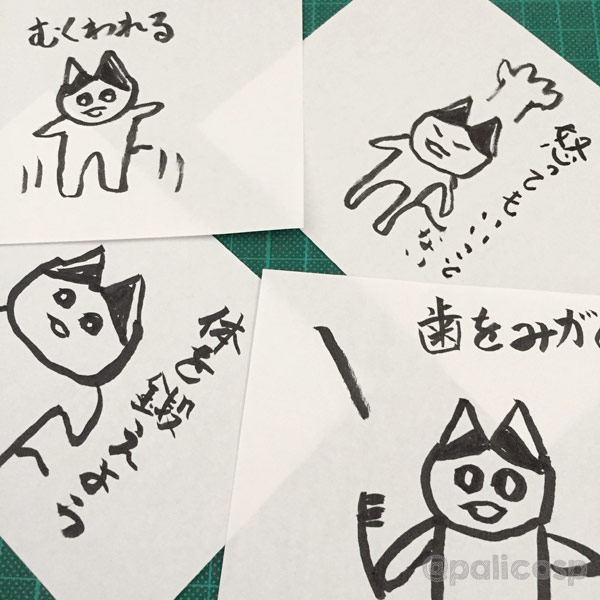 むくわれる
怒っても
いいこと
ない
体を
鍛えよう
歯をみが
@palicosp